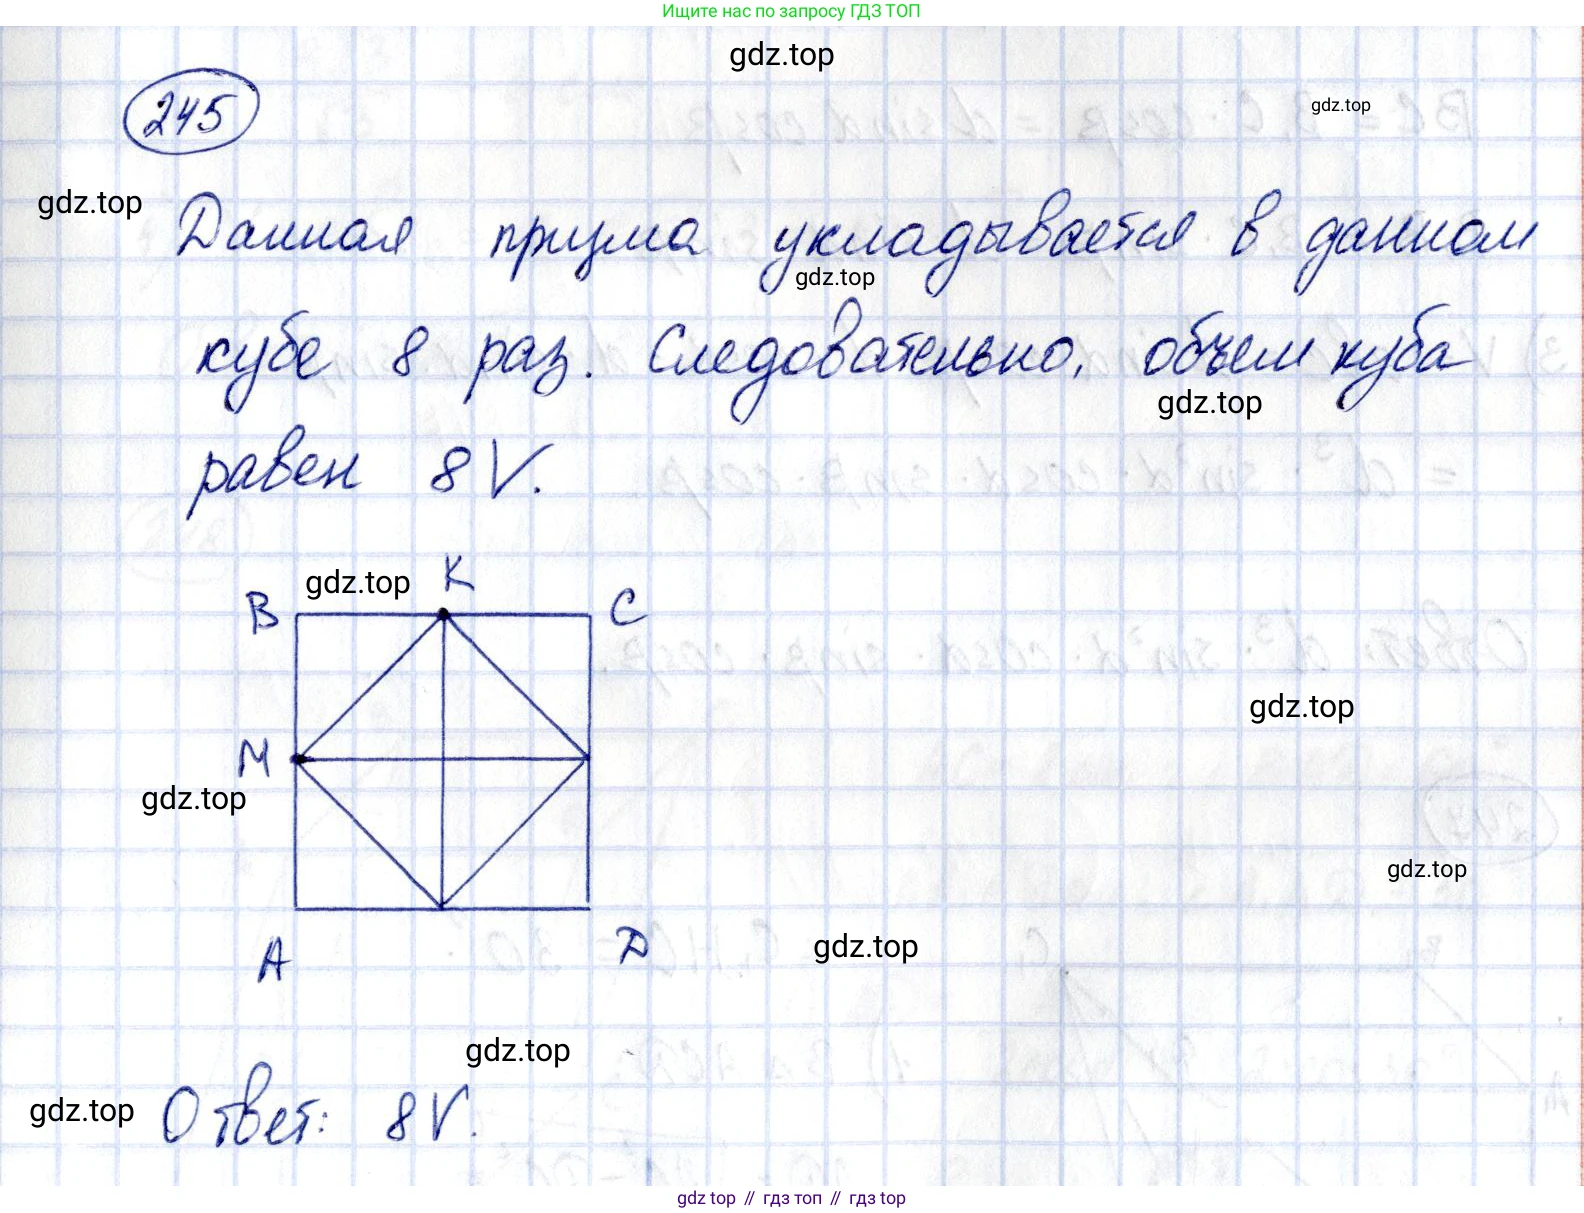 Ищите нас по запросу ГДЗ ТОП
gdz.top
245
gdz.top
gdz.top
Данная призма укладывается в данном
gdz.top
кубе 8 раз. Следовательно, объем куба
gdz.top
равен 8V.
gdz.top
K
B
C
gdz.top
M
gdz.top
gdz.top
A
D
gdz.top
gdz.top
gdz.top
Ответ: 8V.
gdz.top // гдз топ // гдз top